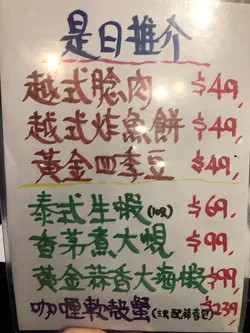 是日推介
越式腍肉 $49,
越式炸魚餅 $49,
黃金四季豆 $49,
泰式生蝦(10隻) $69,
香茅煮大蜆 $99,
黃金蒜香大海蝦 $99,
咖喱軟殼蟹(三隻配蒜蓉包) $239